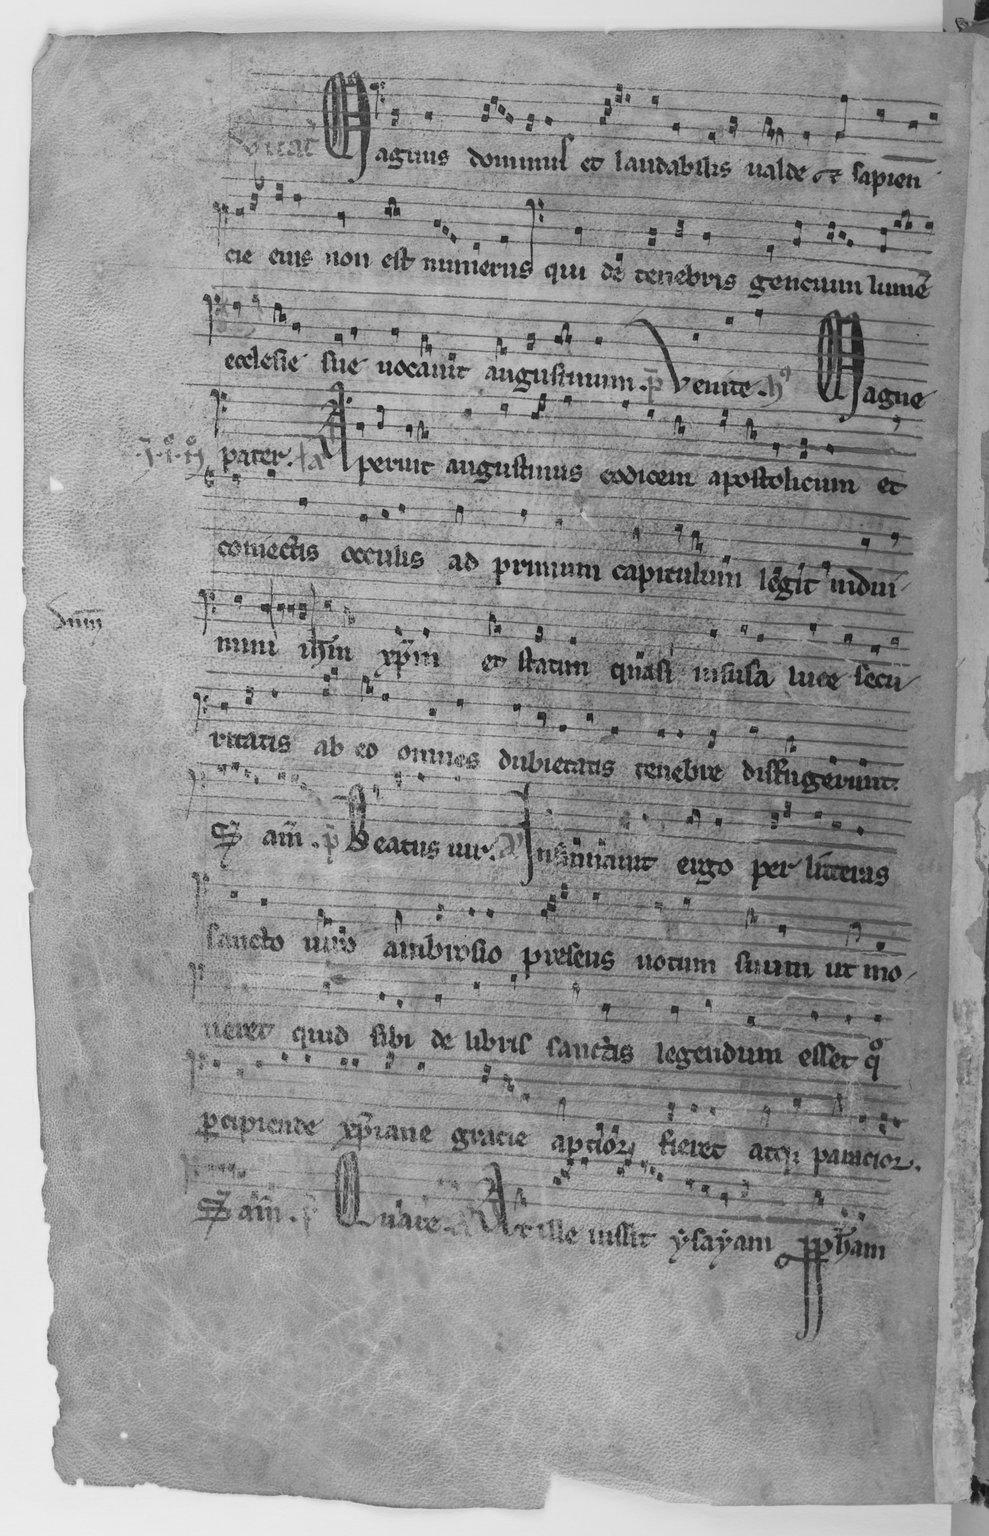 Magnus dominus et laudabilis ualde et sapien
cie eius non est numerus qui de tenebris gencium lumē
ecclesie sue uocauit augustinum. p̄ Venite. h⁹ Magne
pater. a Aperuit augustinus codicem apostolicum et
coniectis occulis ad primum capitulum legit indui
mini ih̄m xp̄m et statim quasi infusa luce secu
ritatis ab eo omnes dubietatis tenebre diffugerunt.
S am̄. p̄ Beatus uir. a Insinuauit ergo per litteras
sancto uiro ambrosio presens uotum suum ut mo
neret quid sibi de libris sanctis legendum esset qͦ
ꝑcipiende xp̄iane gracie apcior fieret atqꝫ paracior.
S am̄. p̄ Quare. a At ille iussit ysayam ꝓph̄am